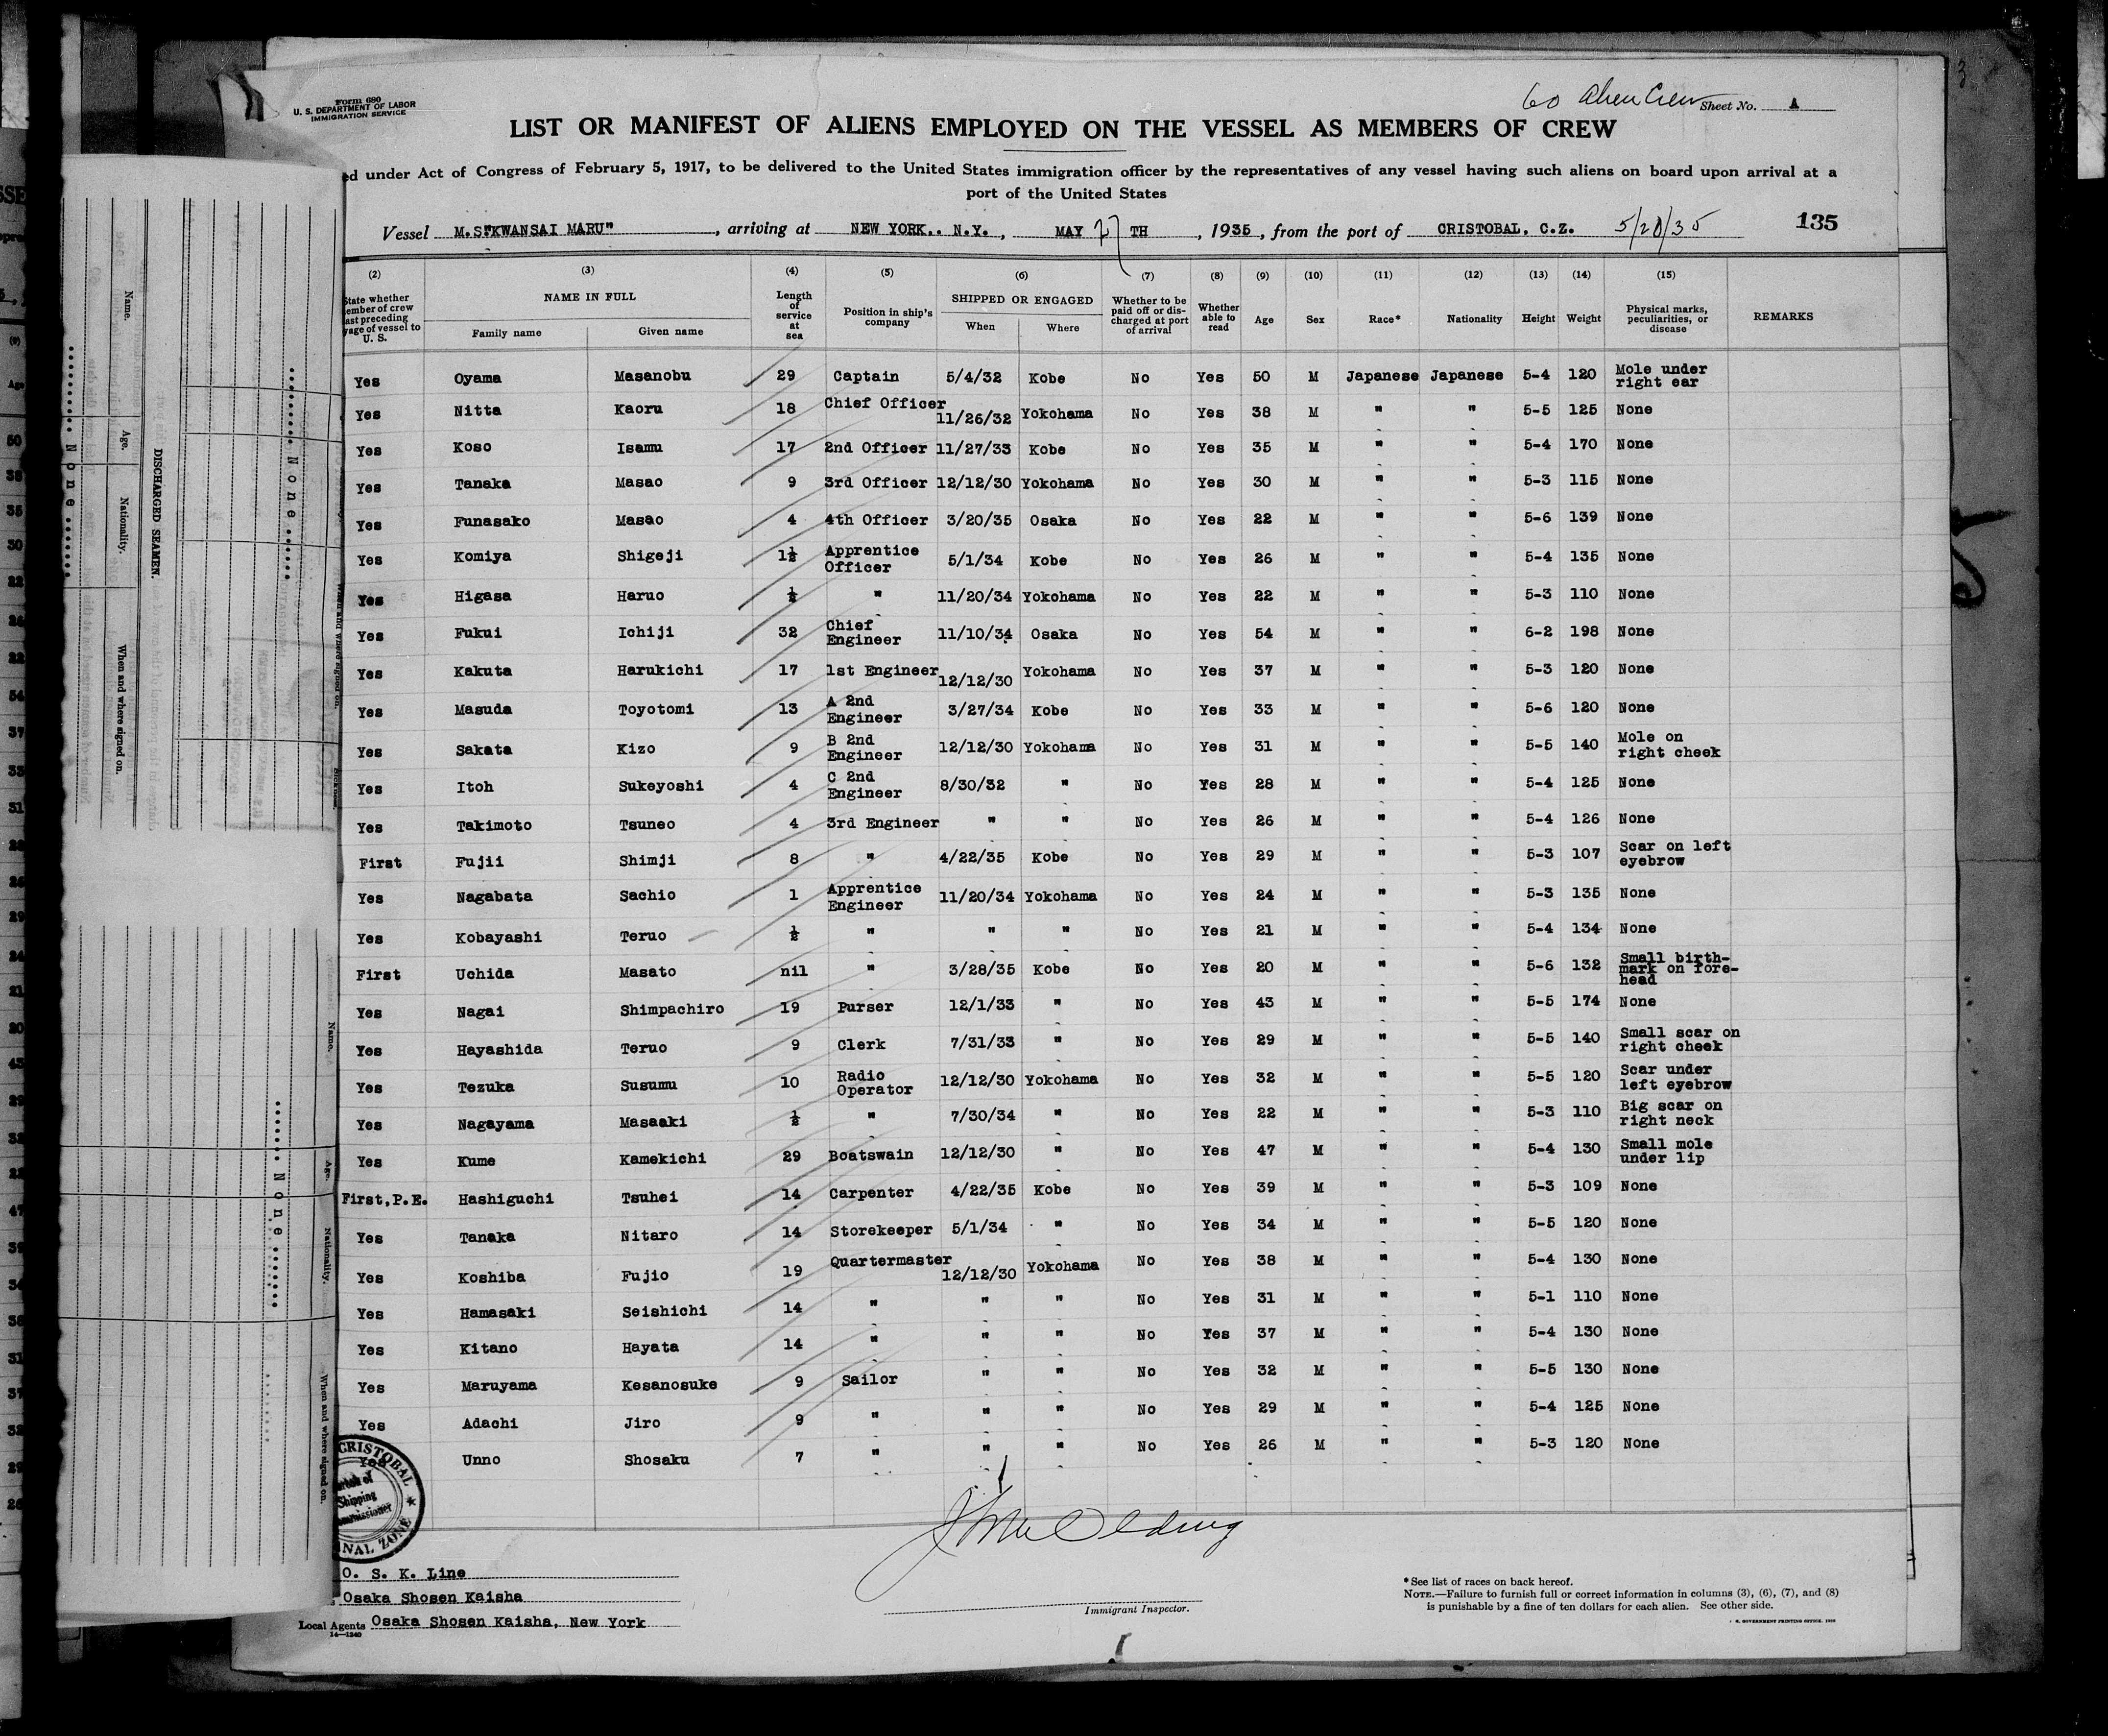 Form 680
U. S. DEPARTMENT OF LABOR
IMMIGRATION SERVICE
60 Alien Crew
Sheet No. A
LIST OR MANIFEST OF ALIENS EMPLOYED ON THE VESSEL AS MEMBERS OF CREW
ed under Act of Congress of February 5, 1917, to be delivered to the United States immigration officer by the representatives of any vessel having such aliens on board upon arrival at a
port of the United States
Vessel M.S."KWANSAI MARU" , arriving at NEW YORK., N.Y. , MAY 27 TH , 1935 , from the port of CRISTOBAL, C.Z. 5/20/35 135
(2) (3) (4) (5) (6) (7) (8) (9) (10) (11) (12) (13) (14) (15)
State whether member of crew last preceding voyage of vessel to U. S. NAME IN FULL Family name Given name Length of service at sea Position in ship's company SHIPPED OR ENGAGED When Where Whether to be paid off or discharged at port of arrival Whether able to read Age Sex Race* Nationality Height Weight Physical marks, peculiarities, or disease REMARKS
Yes Oyama Masanobu 29 Captain 5/4/32 Kobe No Yes 50 M Japanese Japanese 5-4 120 Mole under right ear
Yes Nitta Kaoru 18 Chief Officer 11/26/32 Yokohama No Yes 38 M " " 5-5 125 None
Yes Koso Isamu 17 2nd Officer 11/27/33 Kobe No Yes 35 M " " 5-4 170 None
Yes Tanaka Masao 9 3rd Officer 12/12/30 Yokohama No Yes 30 M " " 5-3 115 None
Yes Funasako Masao 4 4th Officer 3/20/35 Osaka No Yes 22 M " " 5-6 139 None
Yes Komiya Shigeji 1½ Apprentice Officer 5/1/34 Kobe No Yes 26 M " " 5-4 135 None
Yes Higasa Haruo ½ " 11/20/34 Yokohama No Yes 22 M " " 5-3 110 None
Yes Fukui Ichiji 32 Chief Engineer 11/10/34 Osaka No Yes 54 M " " 6-2 198 None
Yes Kakuta Harukichi 17 1st Engineer 12/12/30 Yokohama No Yes 37 M " " 5-3 120 None
Yes Masuda Toyotomi 13 A 2nd Engineer 3/27/34 Kobe No Yes 33 M " " 5-6 120 None
Yes Sakata Kizo 9 B 2nd Engineer 12/12/30 Yokohama No Yes 31 M " " 5-5 140 Mole on right cheek
Yes Itoh Sukeyoshi 4 C 2nd Engineer 8/30/32 " No Yes 28 M " " 5-4 125 None
Yes Takimoto Tsuneo 4 3rd Engineer " " No Yes 26 M " " 5-4 126 None
First Fujii Shimji 8 " 4/22/35 Kobe No Yes 29 M " " 5-3 107 Scar on left eyebrow
Yes Nagabata Sachio 1 Apprentice Engineer 11/20/34 Yokohama No Yes 24 M " " 5-3 135 None
Yes Kobayashi Teruo ½ " " " No Yes 21 M " " 5-4 134 None
First Uchida Masato nil " 3/28/35 Kobe No Yes 20 M " " 5-6 132 Small birth-mark on fore-head
Yes Nagai Shimpachiro 19 Purser 12/1/33 " No Yes 43 M " " 5-5 174 None
Yes Hayashida Teruo 9 Clerk 7/31/33 " No Yes 29 M " " 5-5 140 Small scar on right cheek
Yes Tezuka Susumu 10 Radio Operator 12/12/30 Yokohama No Yes 32 M " " 5-5 120 Scar under left eyebrow
Yes Nagayama Masaaki ½ " 7/30/34 " No Yes 22 M " " 5-3 110 Big scar on right neck
Yes Kume Kamekichi 29 Boatswain 12/12/30 " No Yes 47 M " " 5-4 130 Small mole under lip
First,P.E. Hashiguchi Tsuhei 14 Carpenter 4/22/35 Kobe No Yes 39 M " " 5-3 109 None
Yes Tanaka Nitaro 14 Storekeeper 5/1/34 " No Yes 34 M " " 5-5 120 None
Yes Koshiba Fujio 19 Quartermaster 12/12/30 Yokohama No Yes 38 M " " 5-4 130 None
Yes Hamasaki Seishichi 14 " " " No Yes 31 M " " 5-1 110 None
Yes Kitano Hayata 14 " " " No Yes 37 M " " 5-4 130 None
Yes Maruyama Kesanosuke 9 Sailor " " No Yes 32 M " " 5-5 130 None
Yes Adachi Jiro 9 " " " No Yes 29 M " " 5-4 125 None
Yes Unno Shosaku 7 " " " No Yes 26 M " " 5-3 120 None
CRISTOBAL
Shipping
O. S. K. Line
Osaka Shosen Kaisha
Local Agents Osaka Shosen Kaisha, New York
14—1240
Immigrant Inspector.
*See list of races on back hereof.
NOTE.—Failure to furnish full or correct information in columns (3), (6), (7), and (8)
is punishable by a fine of ten dollars for each alien. See other side.
DISCHARGED SEAMEN.
Name.
Age.
Nationality.
When and where signed on.
None
None
None
Name.
Age.
Nationality.
When and where signed on.